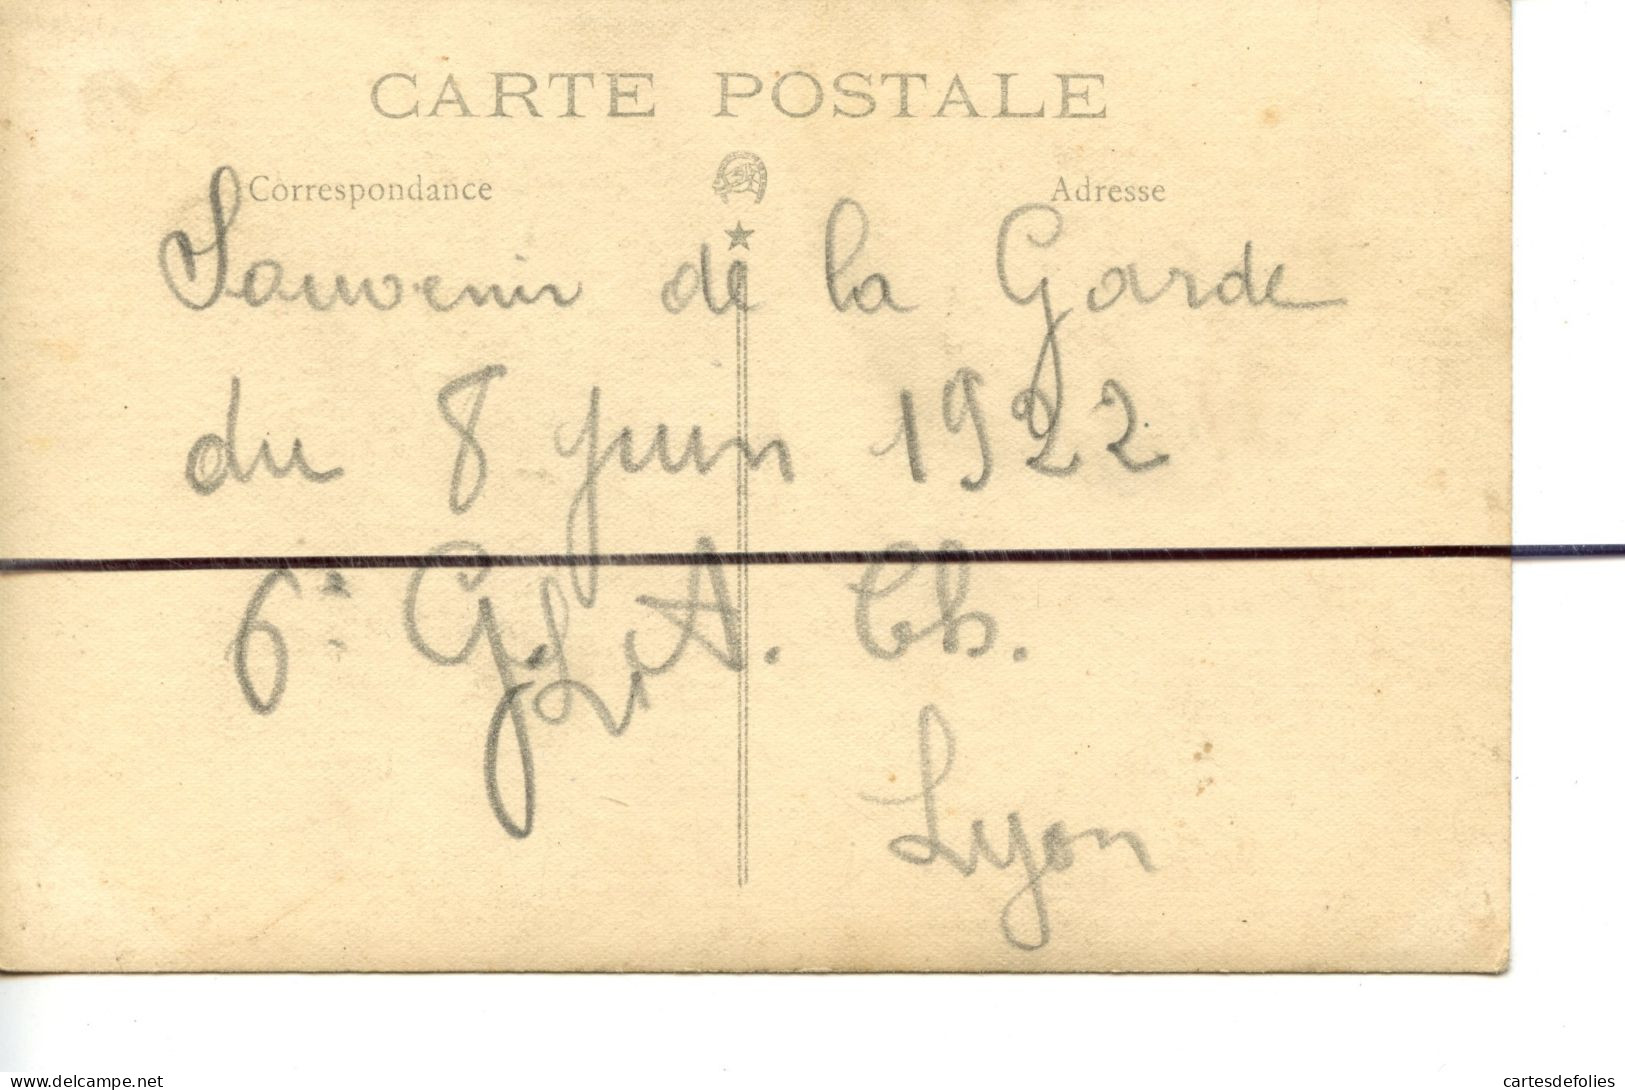 CARTE POSTALE
Correspondance
Adresse
Souvenir de la Garde
du 8 juin 1922
6e G.L.A. Ch.
Lyon
delcampe.net
cartesdefolies